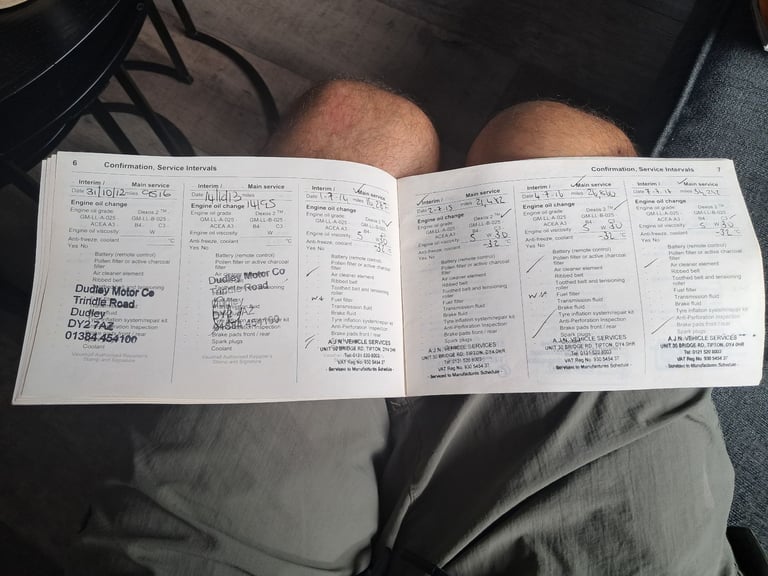 6
Confirmation, Service Intervals
Interim / Main service
Date 31/10/12 miles
Engine oil change
Engine oil grade: Dexos 2 ™
GM-LL-A-025 - GM-LL-B-025 -
ACEA A3 - B4 - C3
Engine oil viscosity W
Anti-freeze, coolant °C
Yes No
Battery (remote control)
Pollen filter or active charcoal
filter
Air cleaner element
Ribbed belt
Dudley Motor Co
Trindle Road
Dudley
DY2 7AZ
01384 454100
Coolant
Vauxhall Authorised Repairer's
Stamp and Signature
Interim / Main service
Date
14195
Engine oil change
Engine oil grade: Dexos 2 ™
GM-LL-A-025 - GM-LL-B-025 -
ACEA A3 - B4 - C3
Engine oil viscosity W
Anti-freeze, coolant °C
Yes No
Battery (remote control)
Pollen filter or active charcoal
filter
Air cleaner element
Dudley Motor Co
Trindle Road
Dudley
DY2 7AZ
01384 454100
Brake pads front / rear
Spark plugs
Coolant
Vauxhall Authorised Repairer's
Stamp and Signature
Interim / Main service
Date 1-7-14 miles
Engine oil change
Engine oil grade: Dexos 2 ™
GM-LL-A-025 - GM-LL-B-025 -
ACEA A3 - B4 - C3
Engine oil viscosity 5 W 30
Anti-freeze, coolant -32 °C
Yes No
Battery (remote control)
Pollen filter or active charcoal
filter
Air cleaner element
Ribbed belt
Toothed belt and tensioning
roller
Fuel filter
Transmission fluid
Brake fluid
Tyre inflation system/repair kit
Anti-Perforation Inspection
Brake pads front / rear
Spark plugs
A.J.N. VEHICLE SERVICES
UNIT 30 BRIDGE RD, TIPTON, DY4 0HR
Tel: 0121 520 8003
VAT Reg No: 930 5454 37
- Serviced to Manufactures Schedule -
Confirmation, Service Intervals
7
Interim / Main service
Date 2-7-15 miles
Engine oil change
Engine oil grade: Dexos 2 ™
GM-LL-A-025 - GM-LL-B-025 -
ACEA A3 - B4 - C3
Engine oil viscosity 5 W 30
Anti-freeze, coolant -32 °C
Yes No
Battery (remote control)
Pollen filter or active charcoal
filter
Air cleaner element
Ribbed belt
Toothed belt and tensioning
roller
Fuel filter
Transmission fluid
Brake fluid
Tyre inflation system/repair kit
Anti-Perforation Inspection
Brake pads front / rear
Spark plugs
A.J.N. VEHICLE SERVICES
UNIT 30 BRIDGE RD, TIPTON, DY4 0HR
Tel: 0121 520 8003
VAT Reg No: 930 5454 37
- Serviced to Manufactures Schedule -
Interim / Main service
Date 4-7-16 miles
Engine oil change
Engine oil grade: Dexos 2 ™
GM-LL-A-025 - GM-LL-B-025 -
ACEA A3 - B4 - C3
Engine oil viscosity 5 W 30
Anti-freeze, coolant -32 °C
Yes No
Battery (remote control)
Pollen filter or active charcoal
filter
Air cleaner element
Ribbed belt
Toothed belt and tensioning
roller
Fuel filter
Transmission fluid
Brake fluid
Tyre inflation system/repair kit
Anti-Perforation Inspection
Brake pads front / rear
Spark plugs
A.J.N. VEHICLE SERVICES
UNIT 30 BRIDGE RD, TIPTON, DY4 0HR
Tel: 0121 520 8003
VAT Reg No: 930 5454 37
- Serviced to Manufactures Schedule -
Interim / Main service
Date miles
Engine oil change
Engine oil grade: Dexos 2 ™
GM-LL-A-025 - GM-LL-B-025 -
ACEA A3 - B4 - C3
Engine oil viscosity 5 W 30
Anti-freeze, coolant -32 °C
Yes No
Battery (remote control)
Pollen filter or active charcoal
filter
Air cleaner element
Ribbed belt
Toothed belt and tensioning
roller
Fuel filter
Transmission fluid
Brake fluid
Tyre inflation system/repair kit
Anti-Perforation Inspection
Brake pads front / rear
Spark plugs
A.J.N. VEHICLE SERVICES
UNIT 30 BRIDGE RD, TIPTON, DY4 0HR
Tel: 0121 520 8003
VAT Reg No: 930 5454 37
- Serviced to Manufactures Schedule -